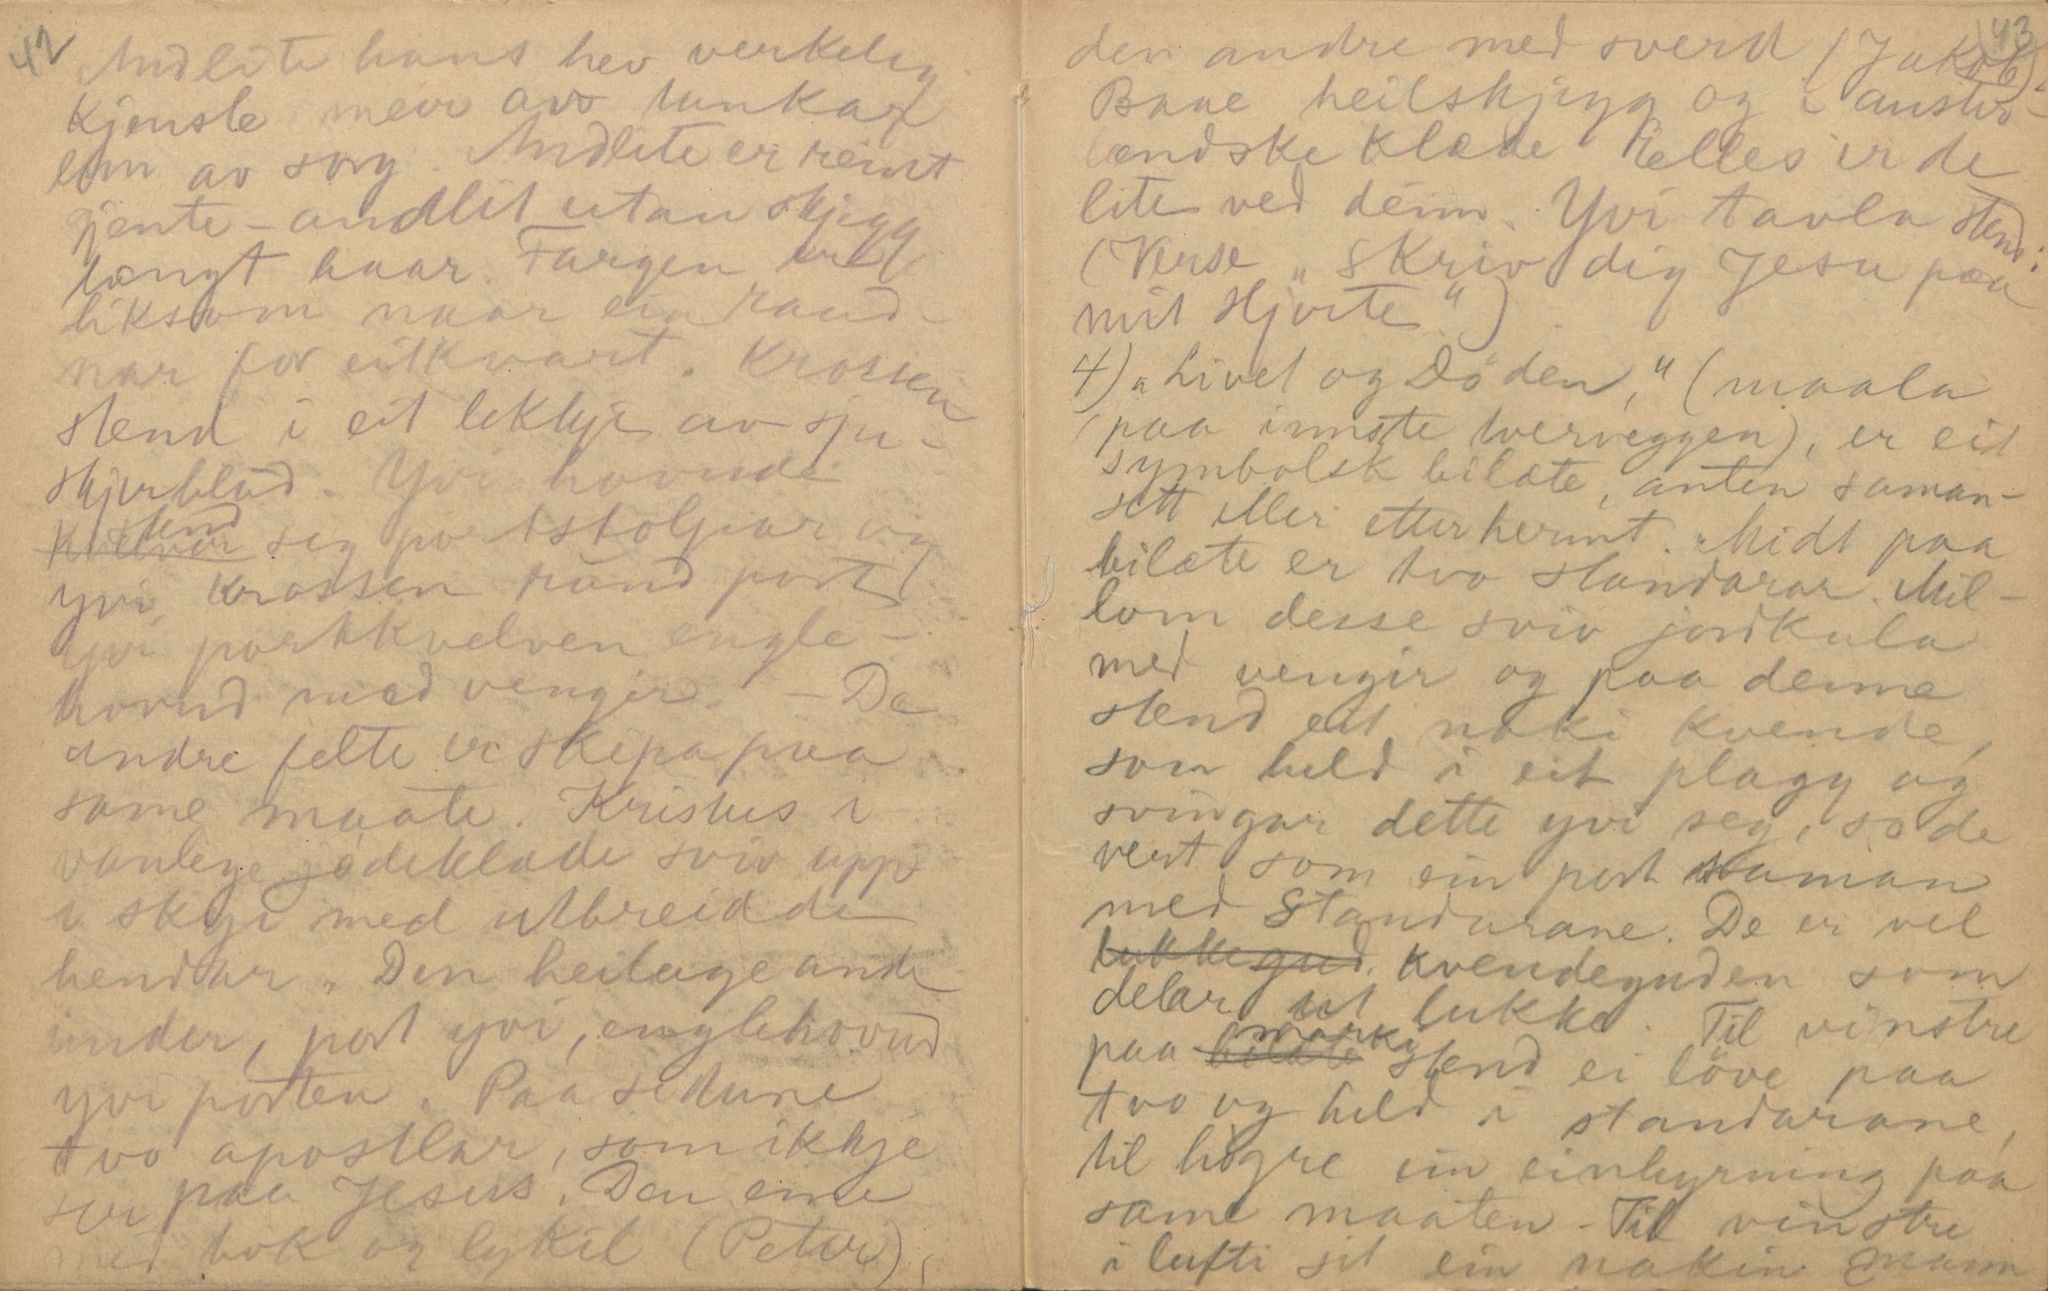 42
Andlite hans hev verkeleg
kjensle meir av tankar
enn av sorg. Andlite er reint
gjente-andlit utan skjegg
langt haar. Fargen er
liksom naar ein raud-
nar for eitkvart. Krossen
stend i eit lekkje av sju-
skjerblad. Yvi hovude
stend
kvelver seg po tstolpar og
yvi krossen rund port
yvi portkvelven engle-
hovud med vengir. – De
andre felte er skipa paa
same maate. Kristus i
vanlege jødeklæde sviv upp
i skyi med utbreidde
hendar. Den heilage ande
under, port yvi, englehovud
yvi porten. Paa sidune
tvo apostlar, som ikkje
ser paa Jesus. Den eine
med bok og lykil (Peter),
43
den andre med sverd (Jakob).
Baae heilskjegg og i auster-
landske klæde Elles er de
lite ved deim. Yvi tavla stend:
(Verse "Skriv dig Jesu paa
mit Hjerte")
4) "Livet og Döden," (maala
paa inmste tverveggen), er eit
symbolsk bilæte, anten saman-
sett eller etterhermt. Midt paa
bilæte er tvo standarar. Mil-
lom desse sviv jordkula
med vengir og paa denne
stend eit naki kvende,
som held i eit plagg og
svingar dette yvi seg, so de
vert som ein port saman
med Standarane. De er vel
lukkegud. kvendeguden som
delar ut lukke. Til vinstre
paa bilæte marki stend ei löve paa
tvo og held i standarane,
til högre ein einhyrning paa
same maaten. Til vinstre
i lufti sit ein nakin mann